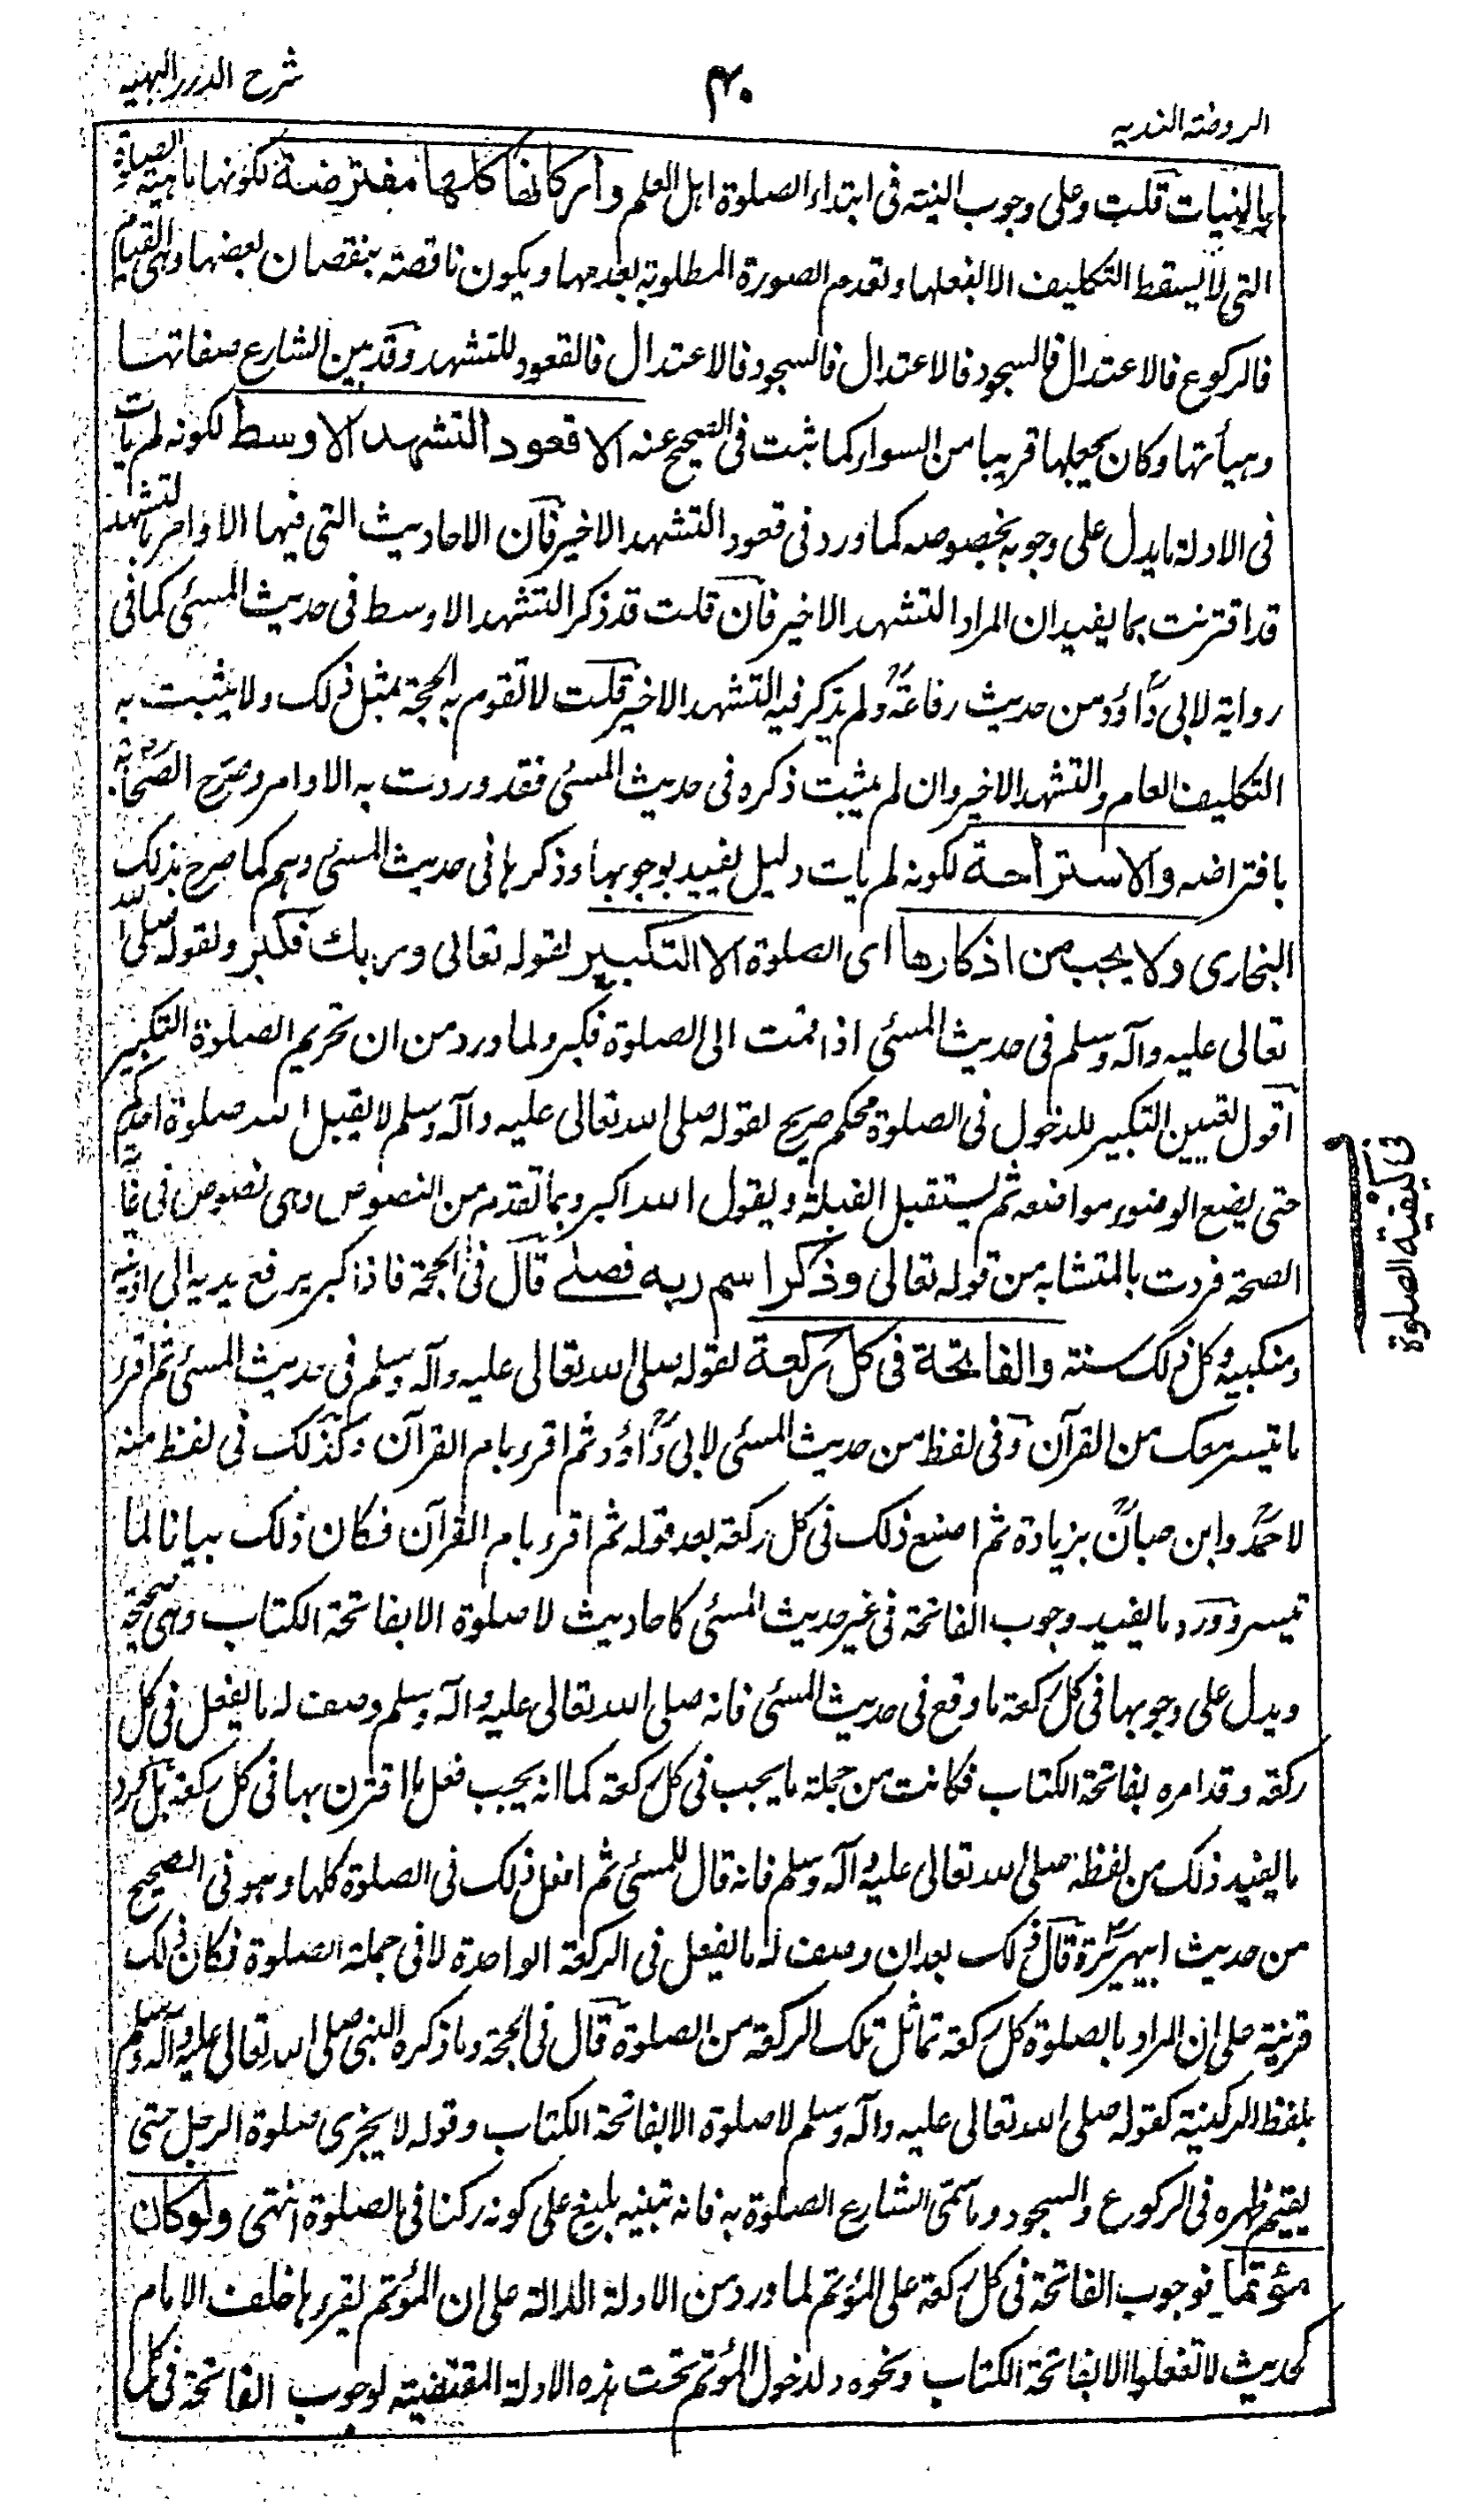 شرح الدرر البهية
٤٠
الروضة الندية
بالنيات قلت وعلى وجوب النية فى ابتداء الصلوة اهل العلم وأركانها كلها مفترضة لكونها ماهية الصلوة
التى لا يسقط التكليف الا بفعلها وتعدم الصورة المطلوبة بعدمها ويكون ناقصة بنقصان بعضها وهى القيام
فالركوع فالاعتدال فالسجود فالاعتدال فالسجود فالاعتدال فالقعود للتشهد وقد بين الشارع صفاتها
وهيأتها وكان يجعلها قريبا من السواء كما ثبت فى الصحيح عنه الا قعود التشهد الاوسط لكونه لم يات
فى الادلة ما يدل على وجوبه بخصوصه كما ورد فى قعود التشهد الاخير فان الاحاديث التى فيها الاوامر بالتشهد
قد اقترنت بما يفيد ان المراد التشهد الاخير فان قلت قد ذكر التشهد الاوسط فى حديث المسئ كما فى
رواية لابى داؤد من حديث رفاعة ولم يذكر فيه التشهد الاخير قلت لا تقوم به الحجة بمثل ذلك ولا يثبت به
التكليف العام والتشهد الاخير وان لم يثبت ذكره فى حديث المسئ فقد وردت به الاوامر وصرح الصحابة
بافتراضه والاستراحة لكونه لم يات دليل يفيد بوجوبها وذكرها فى حديث المسئ وهم كما صرح بذلك
البخارى ولا يجب من اذكارها اى الصلوة الا التكبير لقوله تعالى وربك فكبر ولقوله صلى الله
تعالى عليه وآله وسلم فى حديث المسئ اذا قمت الى الصلوة فكبر ولما ورد من ان تحريم الصلوة التكبير
أقول تعيين التكبير للدخول فى الصلوة محكم صريح لقوله صلى الله تعالى عليه وآله وسلم لا يقبل الله صلوة احدكم
حتى يضع الوضوء مواضعه ثم يستقبل القبلة ويقول الله اكبر وبما تقدم من النصوص وهى نصوص فى غاية
الصحة فردت بالمتشابه من قوله تعالى وذكر اسم ربه فصلى قال فى الحجة فاذا كبر يرفع يديه الى اذنيه
ومنكبيه وكل ذلك سنة والفاتحة فى كل ركعة لقوله صلى الله تعالى عليه وآله وسلم فى حديث المسئ ثم اقرء
ما تيسر معك من القرآن وفى لفظ من حديث المسئ لابى داؤد ثم اقرء بام القرآن وكذلك فى لفظ منه
لاحمد وابن حبان بزيادة ثم اصنع ذلك فى كل ركعة بعد قوله ثم اقرء بام القرآن فكان ذلك بيانا لما
تيسر وورد ما يفيد وجوب الفاتحة فى غير حديث المسئ كاحاديث لا صلوة الا بفاتحة الكتاب وهى صحيحة
ويدل على وجوبها فى كل ركعة ما وقع فى حديث المسئ فانه صلى الله تعالى عليه وآله وسلم وصف له ما يفعل فى كل
ركعة وقد امره بفاتحة الكتاب فكانت من جملة ما يجب فى كل ركعة كما انه يجب فعل ما اقترن بها فى كل ركعة بل ورد
ما يفيد ذلك من لفظه صلى الله تعالى عليه وآله وسلم فانه قال للمسئ ثم افعل ذلك فى الصلوة كلها وهو فى الصحيح
من حديث ابيهريرة قال ذلك بعد ان وصف له ما يفعل فى الركعة الواحدة لا فى جملة الصلوة فكان ذلك
قرينة على ان المراد بالصلوة كل ركعة تماثل تلك الركعة من الصلوة قال فى الحجة وما ذكره النبى صلى الله تعالى عليه وآله وسلم
بلفظ الركنية كقوله صلى الله تعالى عليه وآله وسلم لا صلوة الا بفاتحة الكتاب وقوله لا يجزى صلوة الرجل حتى
يقيم ظهره فى الركوع والسجود وما سمى الشارع الصلوة به فانه تنبيه بليغ على كونه ركنا فى الصلوة انتهى ولو كان
مؤتما فوجوب الفاتحة فى كل ركعة على المؤتم لما ورد من الادلة الدالة على ان المؤتم يقرءها خلف الامام
كحديث لا تفعلوا الا بفاتحة الكتاب ونحوه ولدخول المؤتم تحت هذه الادلة المقتضية لوجوب الفاتحة فى كل
الصلوة